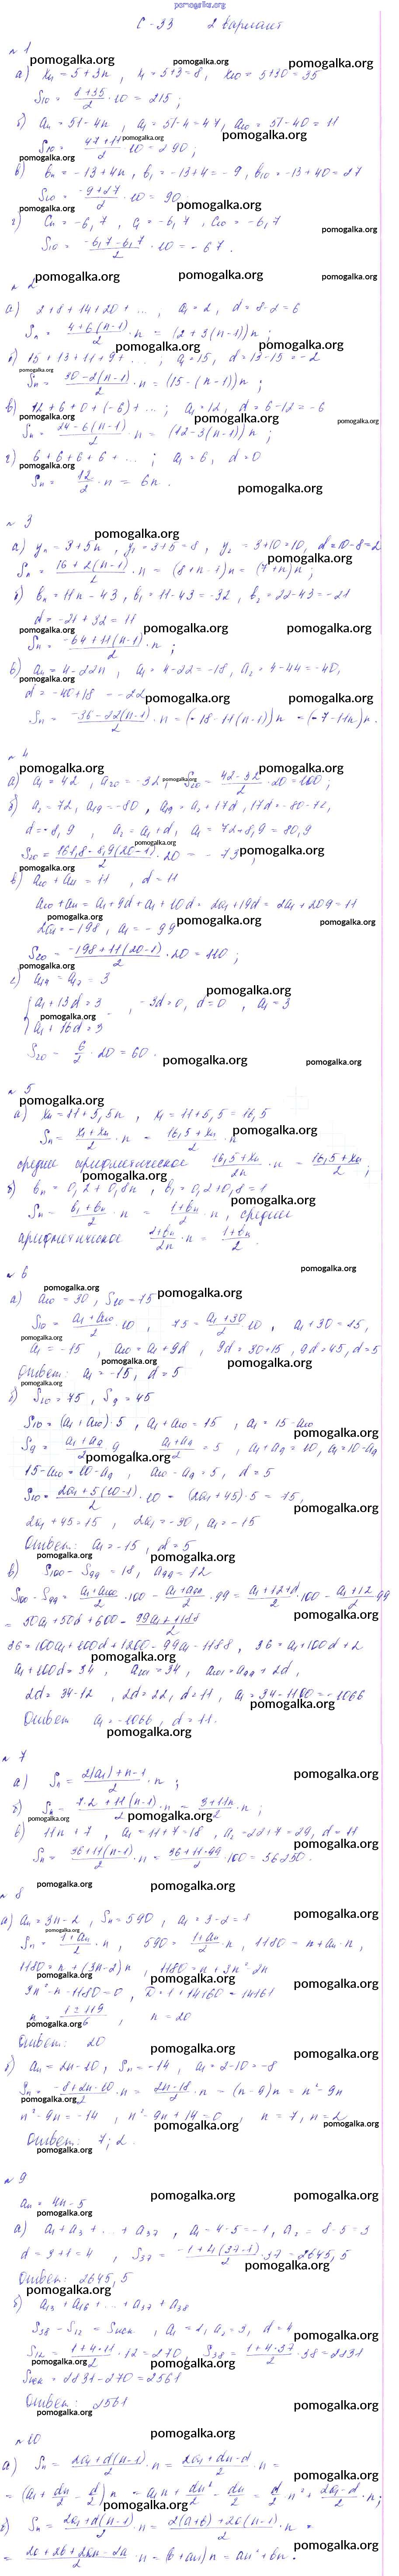 pomogalka.org
С-33 2 вариант
№1
а) xn = 5+3n, x1 = 5+3=8, x10 = 5+30=35
S10 = (8+35)/2 · 10 = 215;
б) an = 51-4n, a1 = 51-4=47, a10 = 51-40=11
S10 = (47+11)/2 · 10 = 290;
в) bn = -13+4n, b1 = -13+4=-9, b10 = -13+40=27
S10 = (-9+27)/2 · 10 = 90
г) Cn = -6,7, C1 = -6,7, C10 = -6,7
S10 = (-6,7-6,7)/2 · 10 = -67.
№2
а) 2+8+14+20+..., a1=2, d=8-2=6
Sn = (4+6(n-1))/2 · n = (2+3(n-1))n;
б) 15+13+11+9+...; a1=15, d=13-15=-2
Sn = (30-2(n-1))/2 · n = (15-(n-1))n;
в) 12+6+0+(-6)+...; a1=12, d=6-12=-6
Sn = (24-6(n-1))/2 · n = (12-3(n-1))n;
г) 6+6+6+6+...; a1=6, d=0
Sn = 12/2 · n = 6n.
№3
а) yn = 3+5n, y1=3+5=8, y2=3+10=10, d=10-8=2
Sn = (16+2(n-1))/2 · n = (8+n-1)n = (7+n)n;
б) bn = 11n-43, b1=11-43=-32, b2=22-43=-21
d=-21+32=11
Sn = (-64+11(n-1))/2 · n;
в) an = 4-22n, a1=4-22=-18, a2=4-44=-40,
d=-40+18=-22
Sn = (-36-22(n-1))/2 · n = (-18-11(n-1))n = (-7-11n)n.
№4
а) a1=42, a20=-32, S20 = (42-32)/2 · 20 = 100;
б) a2=72, a19=-80, a19=a2+17d, 17d=-80-72,
d=-8,9, a2=a1+d, a1=72+8,9=80,9
S20 = (161,8-8,9(20-1))/2 · 20 = -73;
в) a10+a11=11, d=11
a10+a11=a1+9d+a1+10d=2a1+19d=2a1+209=11
2a1=-198, a1=-99
S20 = (-198+11(20-1))/2 · 20 = 110;
г) a14=a17=3
a1+13d=3, -3d=0, d=0, a1=3
a1+16d=3
S20 = 6/2 · 20 = 60.
№5
а) xn=11+5,5n, x1=11+5,5=16,5
Sn = (x1+xn)/2 · n = (16,5+xn)/2 · n
среднее арифметическое (16,5+xn)/2n · n = (16,5+xn)/2;
б) bn=0,2+0,8n, b1=0,2+0,8=1
Sn = (b1+bn)/2 · n = (1+bn)/2 · n, среднее
арифметическое (1+bn)/2n · n = (1+bn)/2.
№6
а) a10=30, S10=75
S10 = (a1+a10)/2 · 10, 75 = (a1+30)/2 · 10, a1+30=15,
a1=-15, a10=a1+9d, 9d=30+15, 9d=45, d=5
Ответ: a1=-15, d=5
б) S10=75, S9=45
S10=(a1+a10)·5, a1+a10=15, a1=15-a10
S9 = (a1+a9)/2 · 9, (a1+a9)/2 = 5, a1+a9=10, a1=10-a9
15-a10=10-a9, a10-a9=5, d=5
S10 = (2a1+5(10-1))/2 · 10 = (2a1+45)·5=75,
2a1+45=15, 2a1=-30, a1=-15
Ответ: a1=-15, d=5
в) S100-S99=18, a99=12
S100-S99 = (a1+a100)/2 · 100 - (a1+a99)/2 · 99 = (a1+12+d)/2 · 100 - (a1+12)/2 · 99
= 50a1+50d+600 - (99a1+1188)/2
36=100a1+100d+1200-99a1-1188, 36=a1+100d+12
a1+100d=34, a101=34, a101=a99+2d,
2d=34-12, 2d=22, d=11, a1=34-1100=-1066
Ответ: a1=-1066, d=11.
№7
а) Sn = (2(a1)+n-1)/2 · n;
б) Sn = (7·2+11(n-1))/2 · n = (3+11n)/2 · n;
в) 11n+7, a1=11+7=18, a2=22+7=29, d=11
Sn = (36+11(n-1))/2 · n = (36+11·99)/2 · 100 = 56250.
№8
а) an=3n-2, Sn=590, a1=3-2=1
Sn = (1+an)/2 · n, 590 = (1+an)/2 · n, 1180=n+an·n,
1180=n+(3n-2)n, 1180=n+3n²-2n
3n²-n-1180=0, D=1+14160=14161
n = (1±119)/6, n=20
Ответ: 20
б) an=2n-10, Sn=-14, a1=2-10=-8
Sn = (-8+2n-10)/2 · n = (2n-18)/2 · n = (n-9)n = n²-9n
n²-9n=-14, n²-9n+14=0, n=7, n=2
Ответ: 7; 2.
№9
an=4n-5
а) a1+a3+...+a37, a1=4-5=-1, a2=8-5=3
d=3+1=4, S37 = (-1+4(37-1))/2 · 37 = 2645,5
Ответ: 2645,5
б) a13+a16+...+a37+a38
S38-S12=Sиск, a1=1, a2=3, d=4
S12 = (1+4·11)/2 · 12 = 270, S38 = (1+4·37)/2 · 38 = 2831
Sиск=2831-270=2561
Ответ: 2561
№10
а) Sn = (2a1+d(n-1))/2 · n = (2a1+dn-d)/2 · n =
= (a1+dn/2-d/2)n = a1n+dn²/2-dn/2 = d/2 · n²+(2a1-d)/2 · n;
б) Sn = (2a1+d(n-1))/2 · n = (2(a+b)+2a(n-1))/2 · n =
= (2a+2b+2an-2a)/2 · n = (b+an)n = an²+bn.